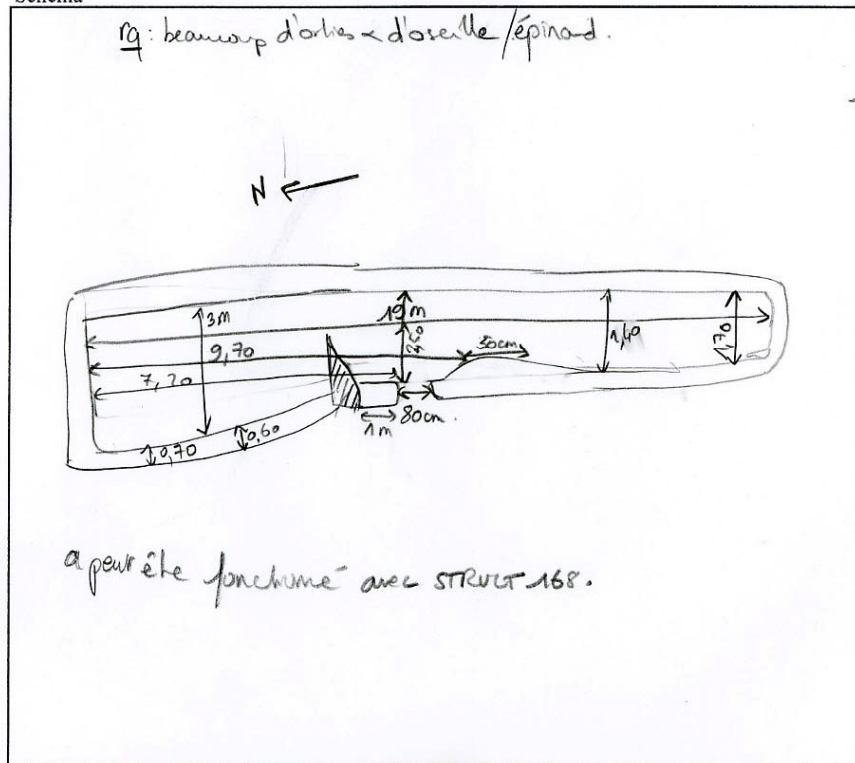 Schéma
rq : beaucoup d'orties & d'oseille / épinard.
N
3m
19 m
9,70
7,20
2,60
50cm
1,40
1,70
1m
80cm.
0,70
0,60
a peut être fonctionné avec STRUCT 168.